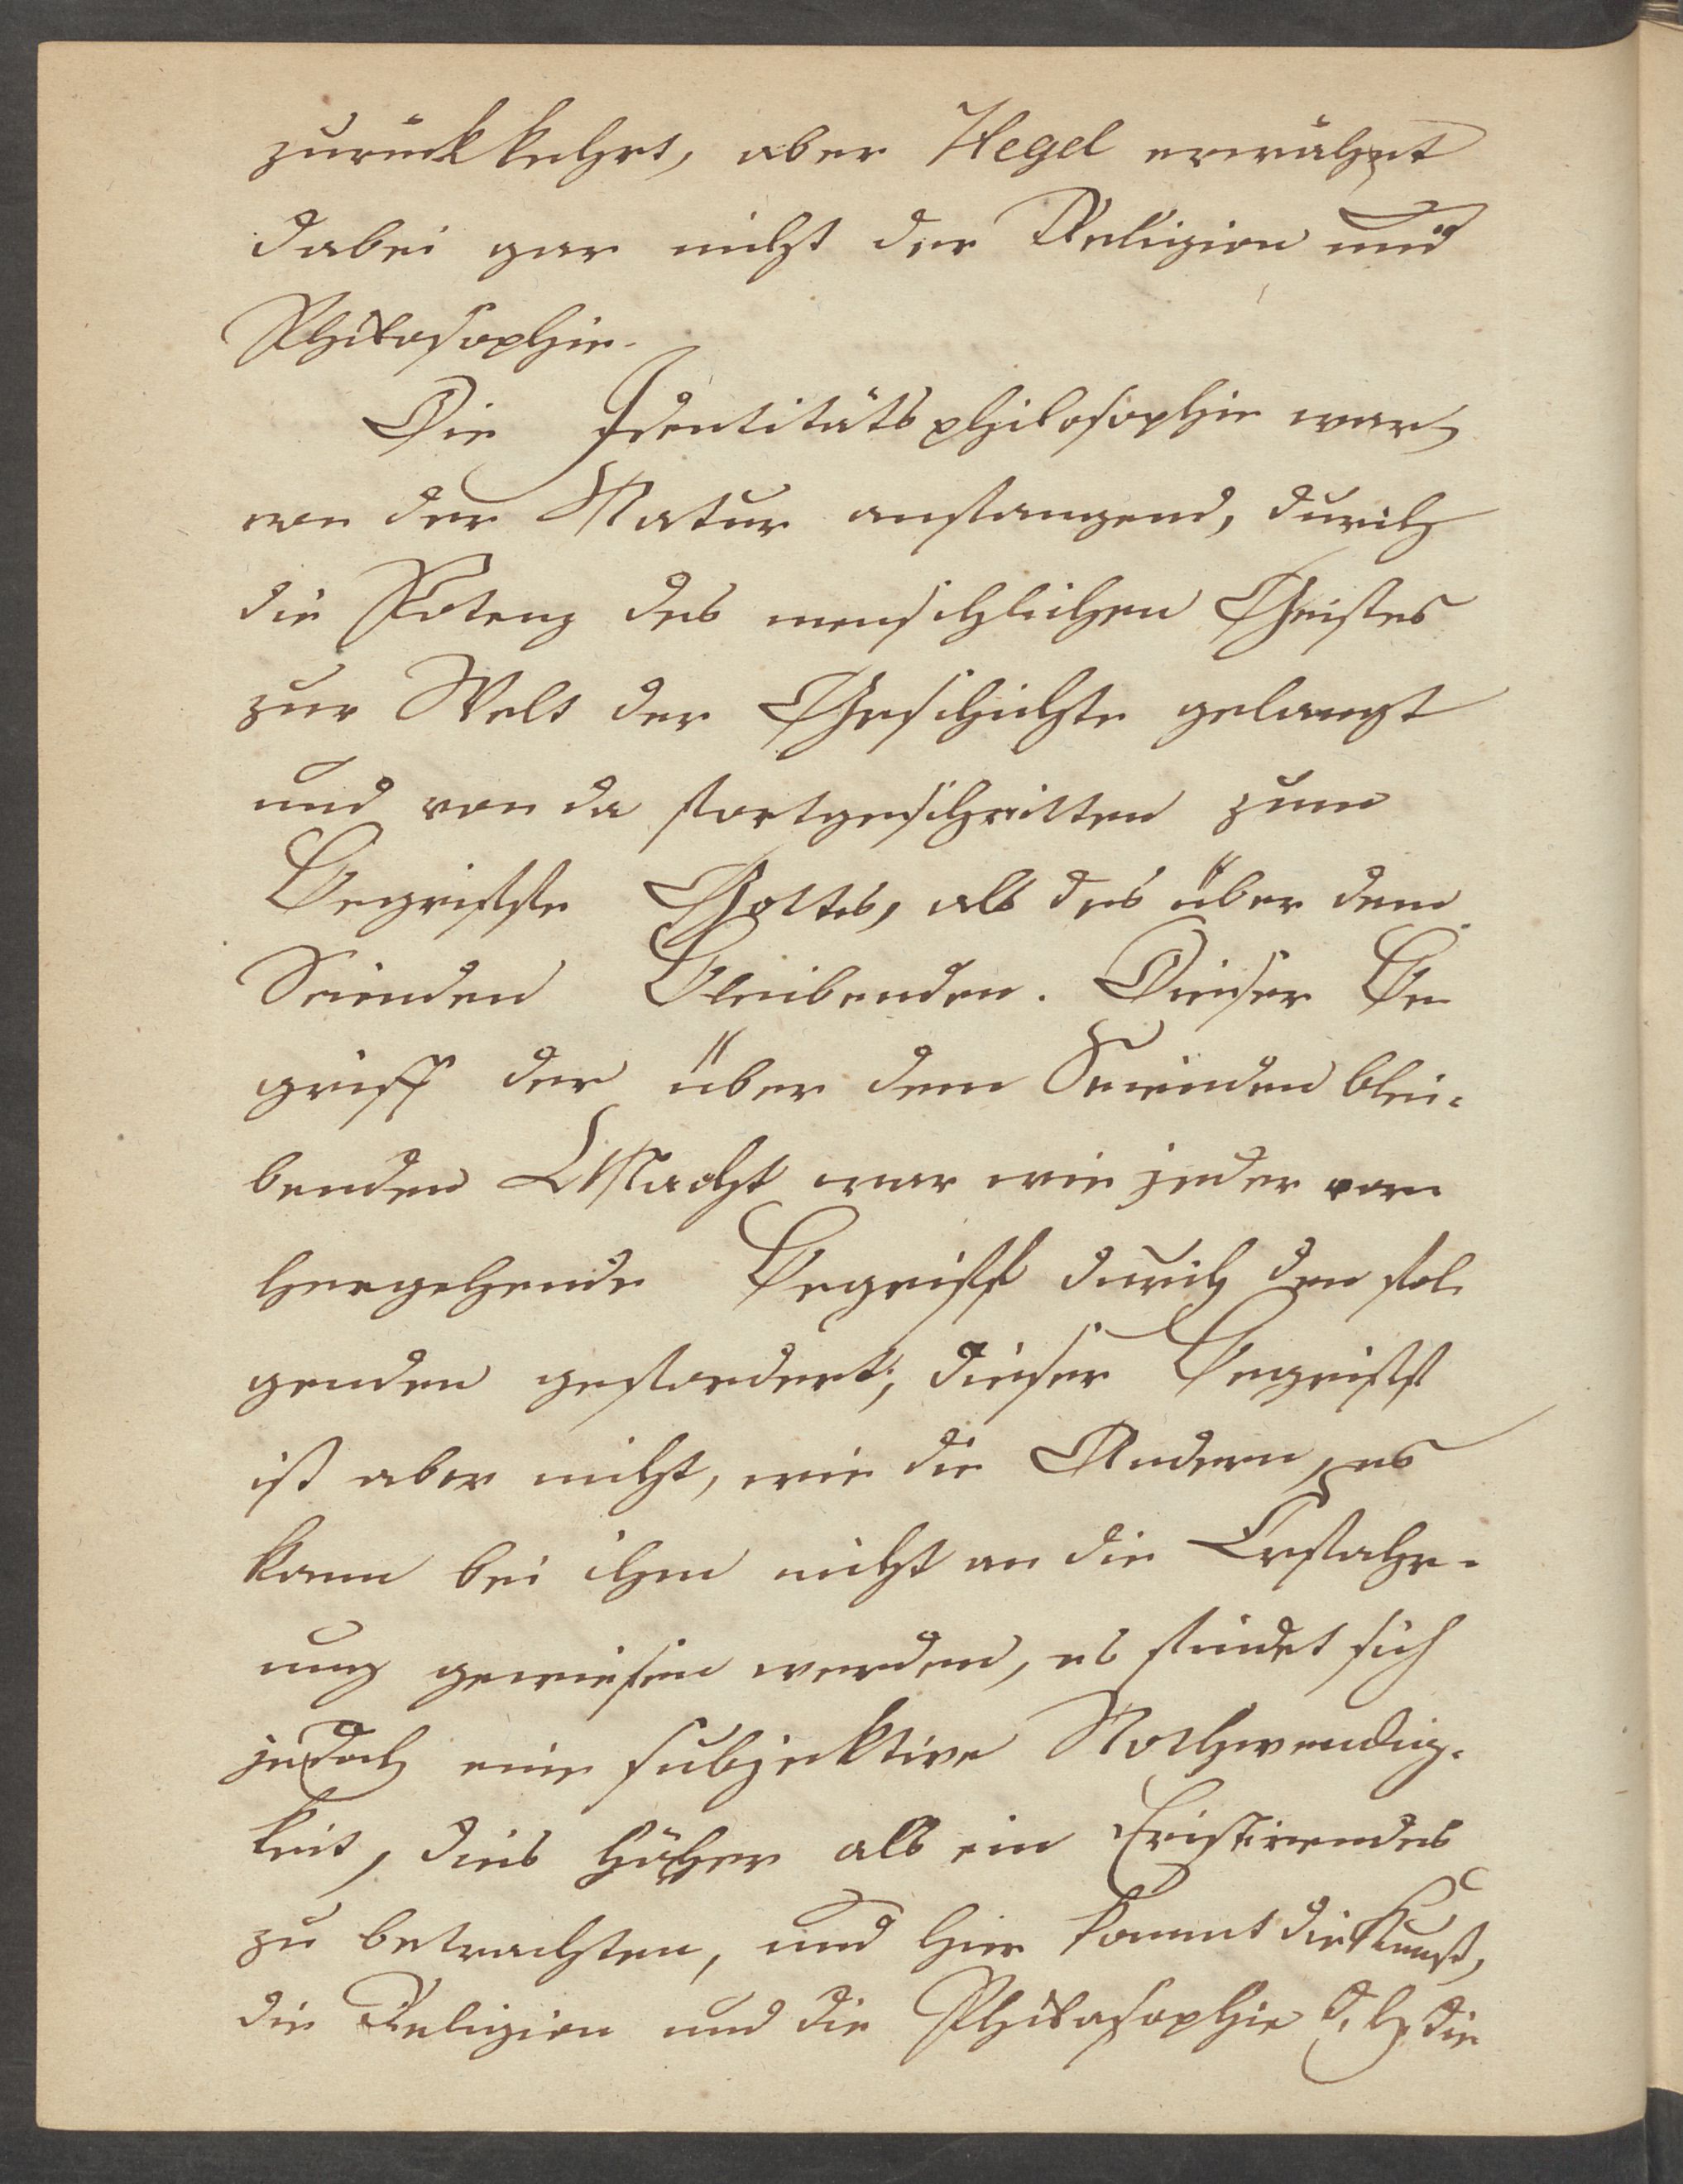 zurück kehrt, aber Hegel erwähnt
dabei gar nicht der Religion und
Philosophie.
Die Identitätsphilosophie war,
von der Natur anfangend, durch
die Potenz des menschlichen Geistes
zur Welt der Geschichte gelangt
und von da fortgeschritten zum
Begriffe Gottes, als des über dem
Seienden Bleibenden. Dieser Be
griff der über dem Seienden blei-
benden Macht war wie jeder vor
hergehende Begriff durch den fol
genden gefordert; dieser Begriff
ist aber nicht, wie die Andern, es
kann bei ihm nicht an die Erfahr-
ung gewiesen werden, es findet sich
jedoch eine subjektive Nothwendig-
keit, dies höher als ein Existirendes
zu betrachten, und hier kommt die Kunst,
die Religion und die Philosophie d. h. die